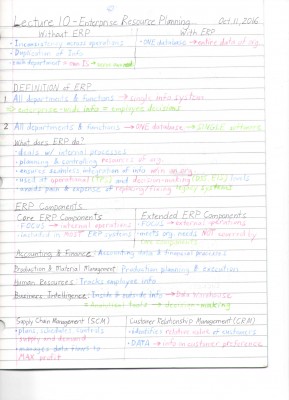 Lecture 10 - Enterprise Resource Planning Oct 11, 2016
Without ERP With ERP
· Inconsistency across operations · ONE database → entire data of org.
· Duplication of Info
· each department → own IS →
DEFINITION of ERP
1 All departments & functions → single info system
⇒ enterprise-wide info = employee decisions
2 All departments & functions → ONE database →
What does ERP do?
· deals w/ internal processes
· planning & controlling resources of org.
· ensures seamless integration of info w/in an org
· used at operational (TPS) and decision-making levels
· avoids pain & expense of replacing/fixing legacy systems
ERP Components
Core ERP Components Extended ERP Components
FOCUS → internal operations · FOCUS → external operations
· included in MOST ERP systems · meets org. needs NOT covered by
Accounting & Finance: Accounting data & financial processes
Production & Material Management: Production planning & execution
Human Resources: Tracks employee info
Business Intelligence: Inside & outside info → Data warehouse
→ decision-making
Supply Chain Management (SCM) Customer Relationship Management (CRM)
· plans, schedules, controls · identifies relative value of customers
supply and demand · DATA → info on customer preference
· manages data flows to
MAX profit